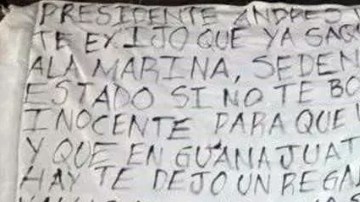 PRESIDENTE ANDRES
TE EXIJO QUE YA SAQ
ALA MARINA, SEDEN
ESTADO SI NO TE BO
INOCENTE PARA QUE
Y QUE EN GUANAJUAT
HAY TE DEJO UN REGA